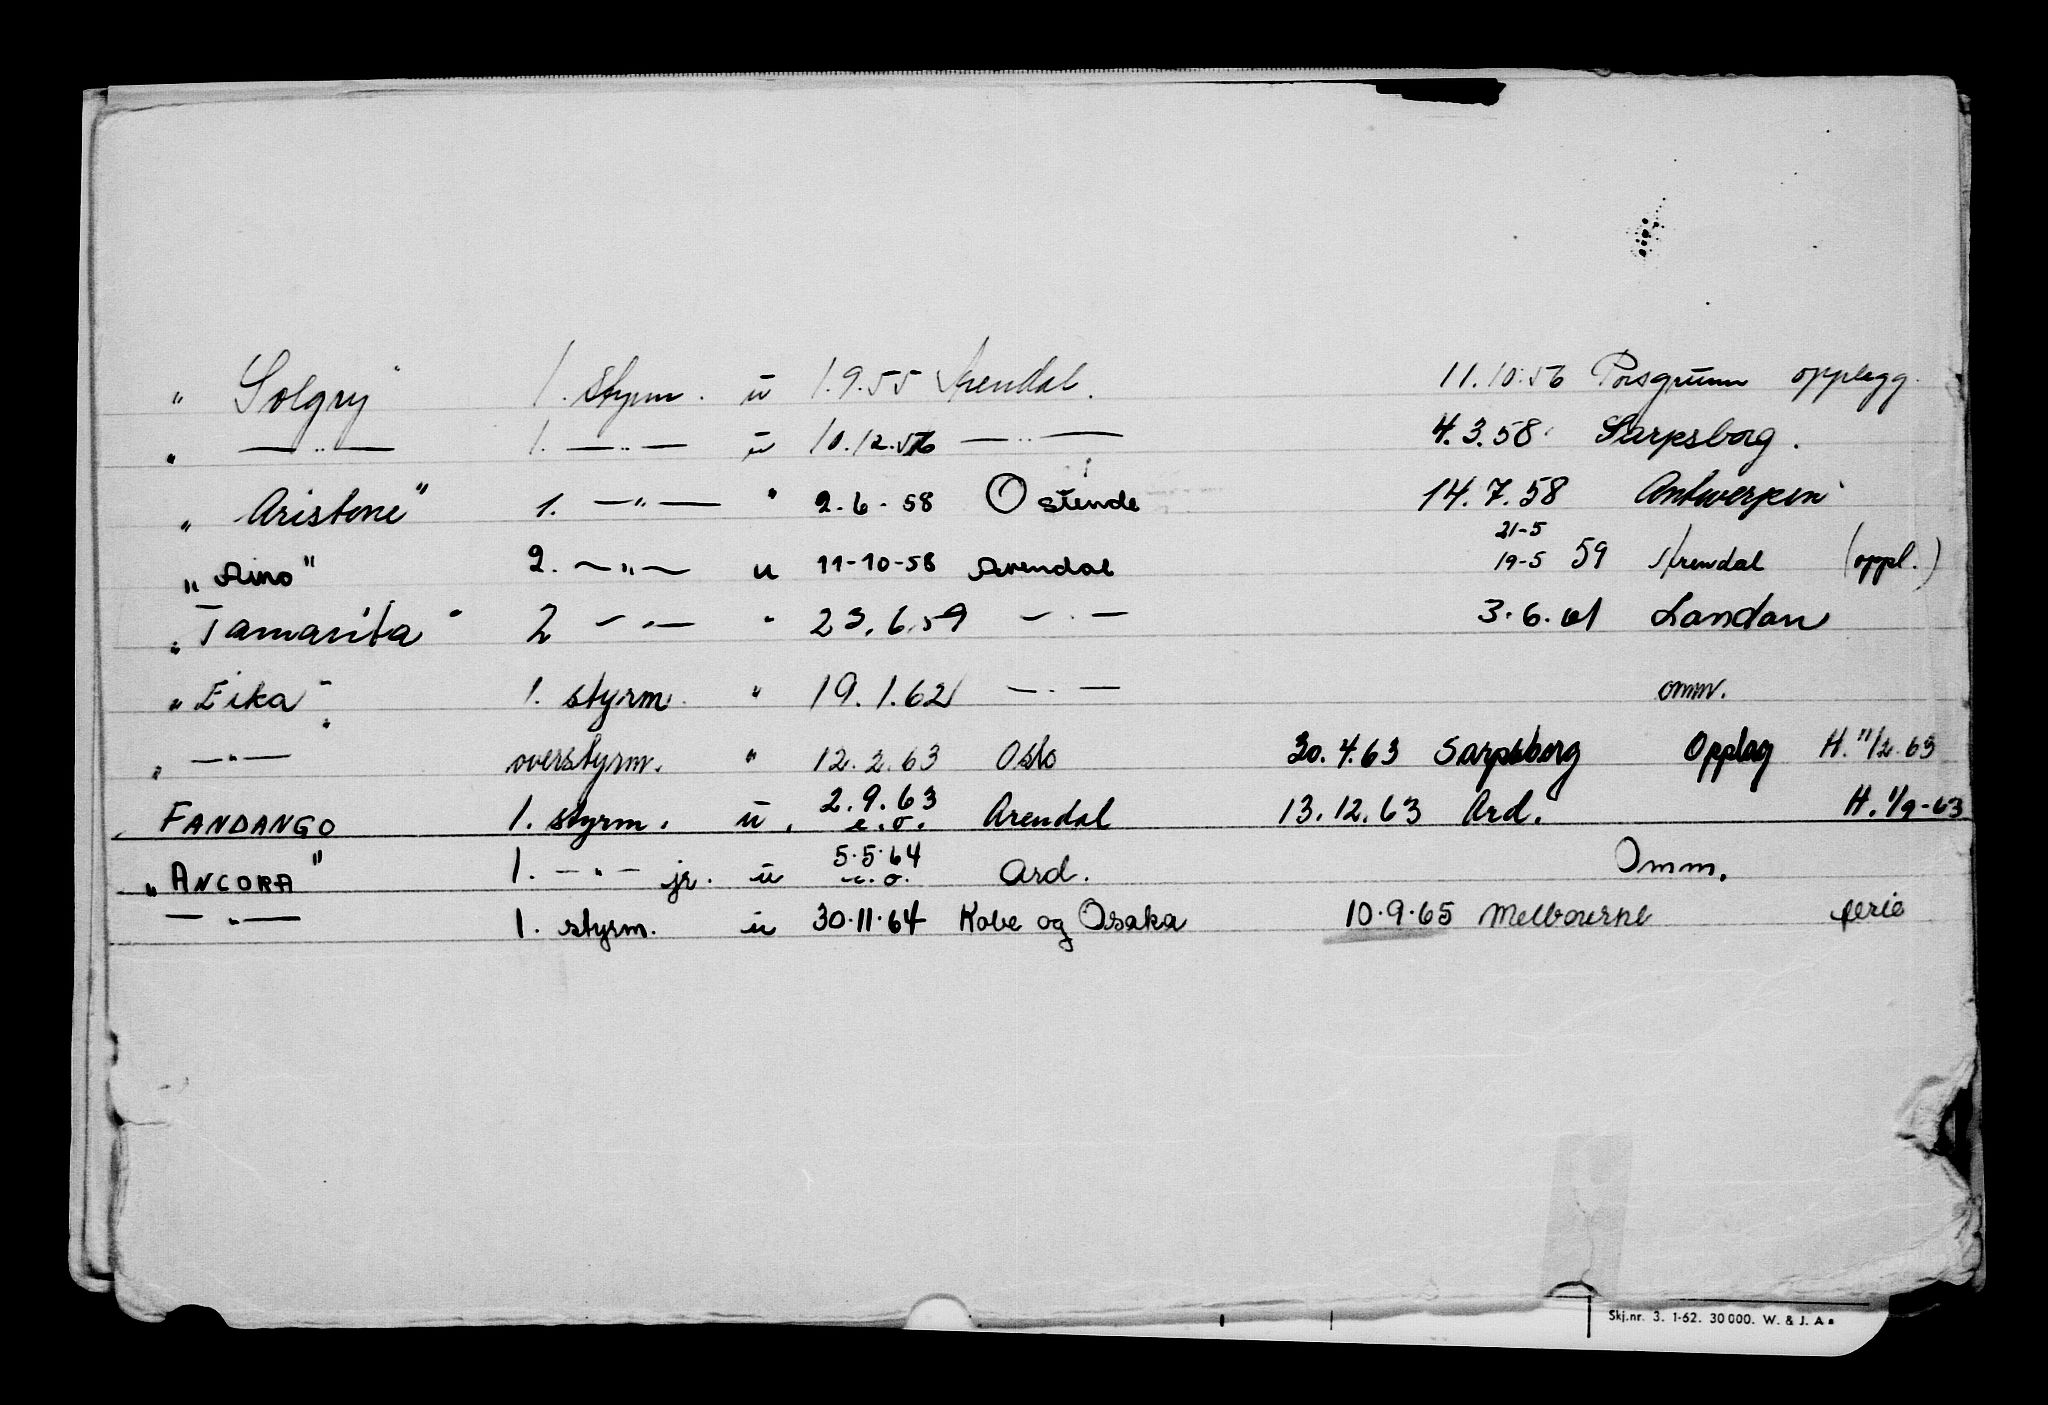 " Solgry" 1. styrm. u 1.9.55 Arendal. 11.10.56 Porsgrunn opplegg.
" —"— 1. —"— u 10.12.56 —"— 4.3.58 Sarpsborg.
" Aristone" 1. —"— " 2-6-58 Ostende 14.7.58 Antwerpen
21-5
" Aino" 2. —"— u 11-10-58 Arendal 19-5 59 Arendal (oppl.)
" Tamarita" 2 —"— " 23.6.59 —"— 3.6.61 Landau
" Eika" 1. styrm. " 19.1.62 —"— omm.
" —"— overstyrm. " 12.2.63 Oslo 30.4.63 Sarpsborg Opplag H. 11/2.63
FANDANGO 1. styrm. u. 2.9.63 e.o. Arendal 13.12.63 Ard. H. 1/9-63
" ANCORA" 1. —"— jr. u 5.5.64 e.o. Ard. Omm.
—"— 1. styrm. u 30.11.64 Kobe og Osaka 10.9.65 Melbourne ferie
Skj.nr. 3. 1-62. 30000. W. & J. A.s